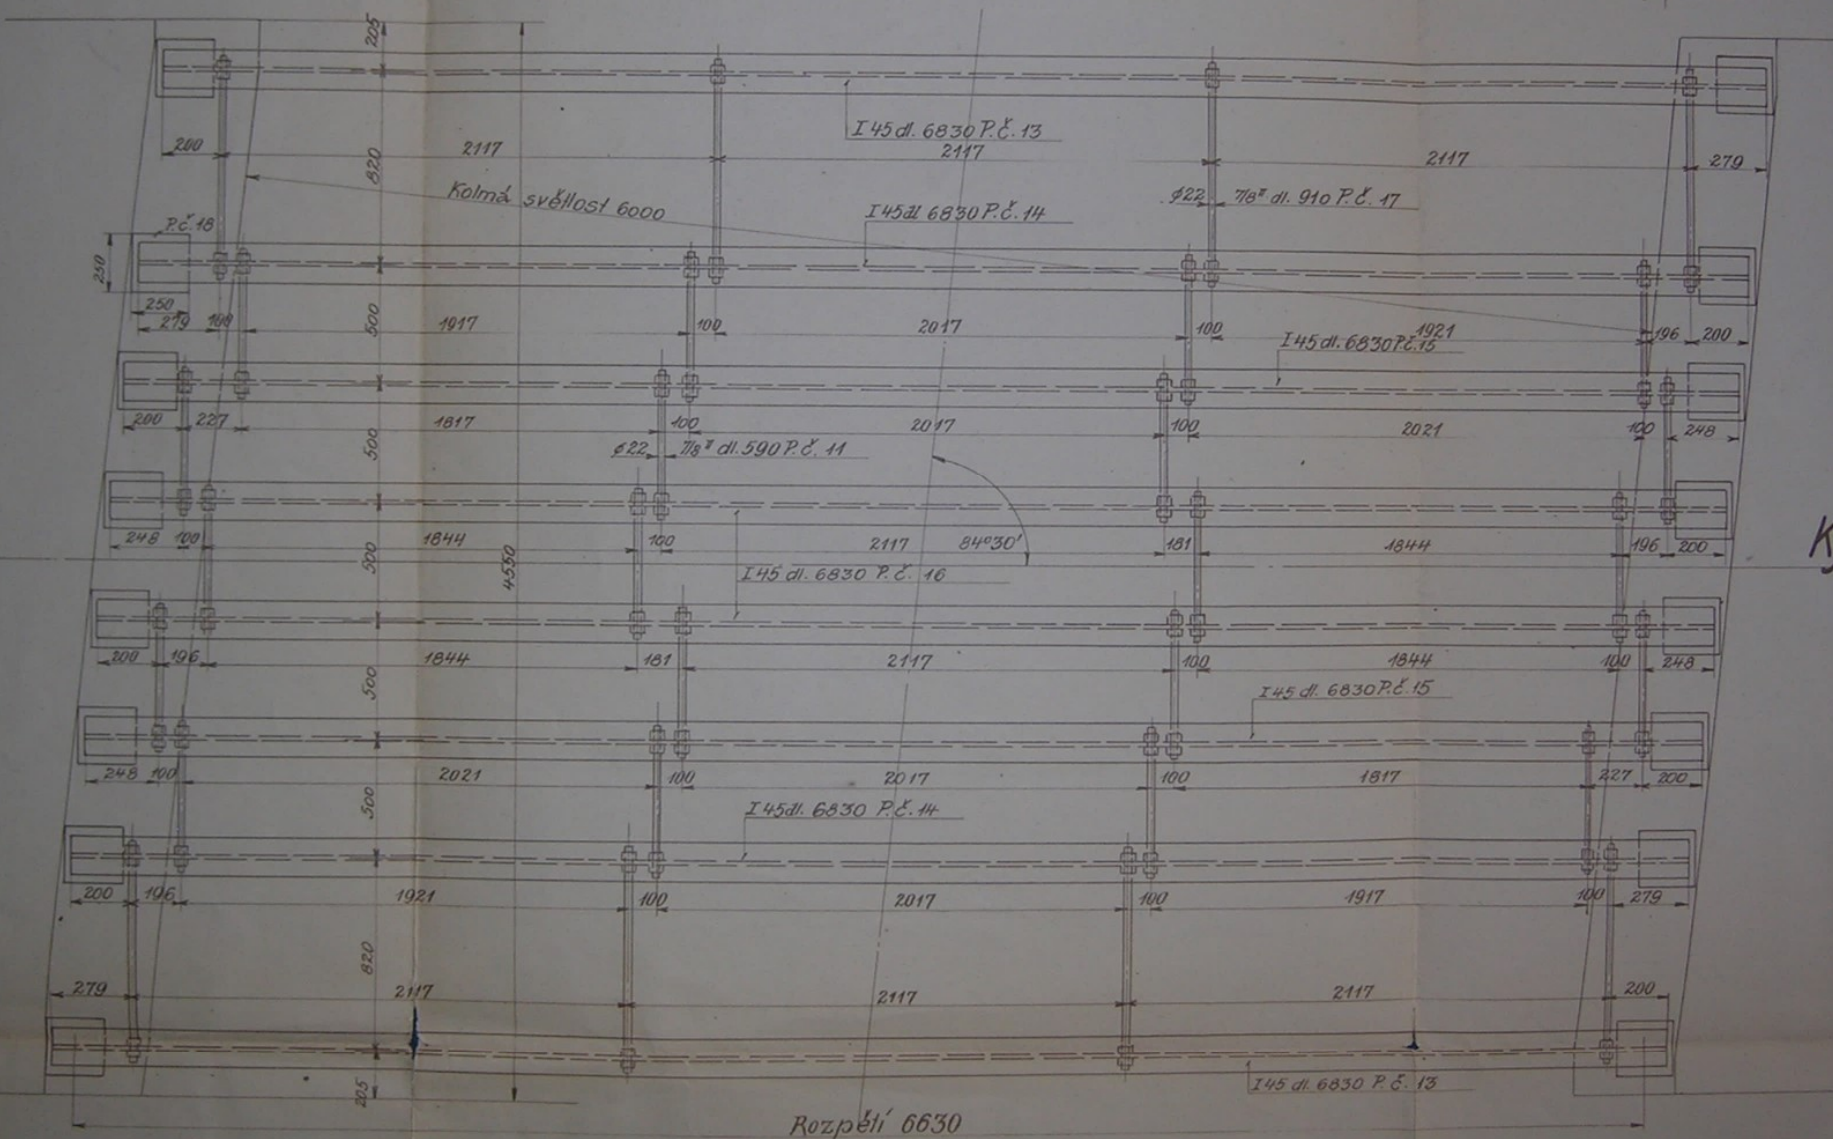 205
I 45 dl. 6830 P.č. 13
200
2117
820
2117
2117
279
Kolmá světlost 6000
ø22
7/8" dl. 910 P.č. 17
I 45 dl 6830 P.č. 14
P.č. 18
250
250
279
100
1917
500
100
2017
100
1921
196
200
I 45 dl. 6830 P.č. 15
200
227
1817
500
100
2017
100
2021
100
248
ø22
7/8" dl. 590 P.č. 11
248
100
1844
500
4550
100
2117
84°30'
181
1844
196
200
I 45 dl. 6830 P.č. 16
200
196
1844
500
181
2117
100
1844
100
248
I 45 dl. 6830 P.č. 15
248
100
2021
500
100
2017
100
1817
227
200
I 45 dl. 6830 P.č. 14
200
196
1921
100
2017
100
1917
100
279
820
279
2117
2117
2117
200
205
I 45 dl. 6830 P.č. 13
Rozpětí 6630